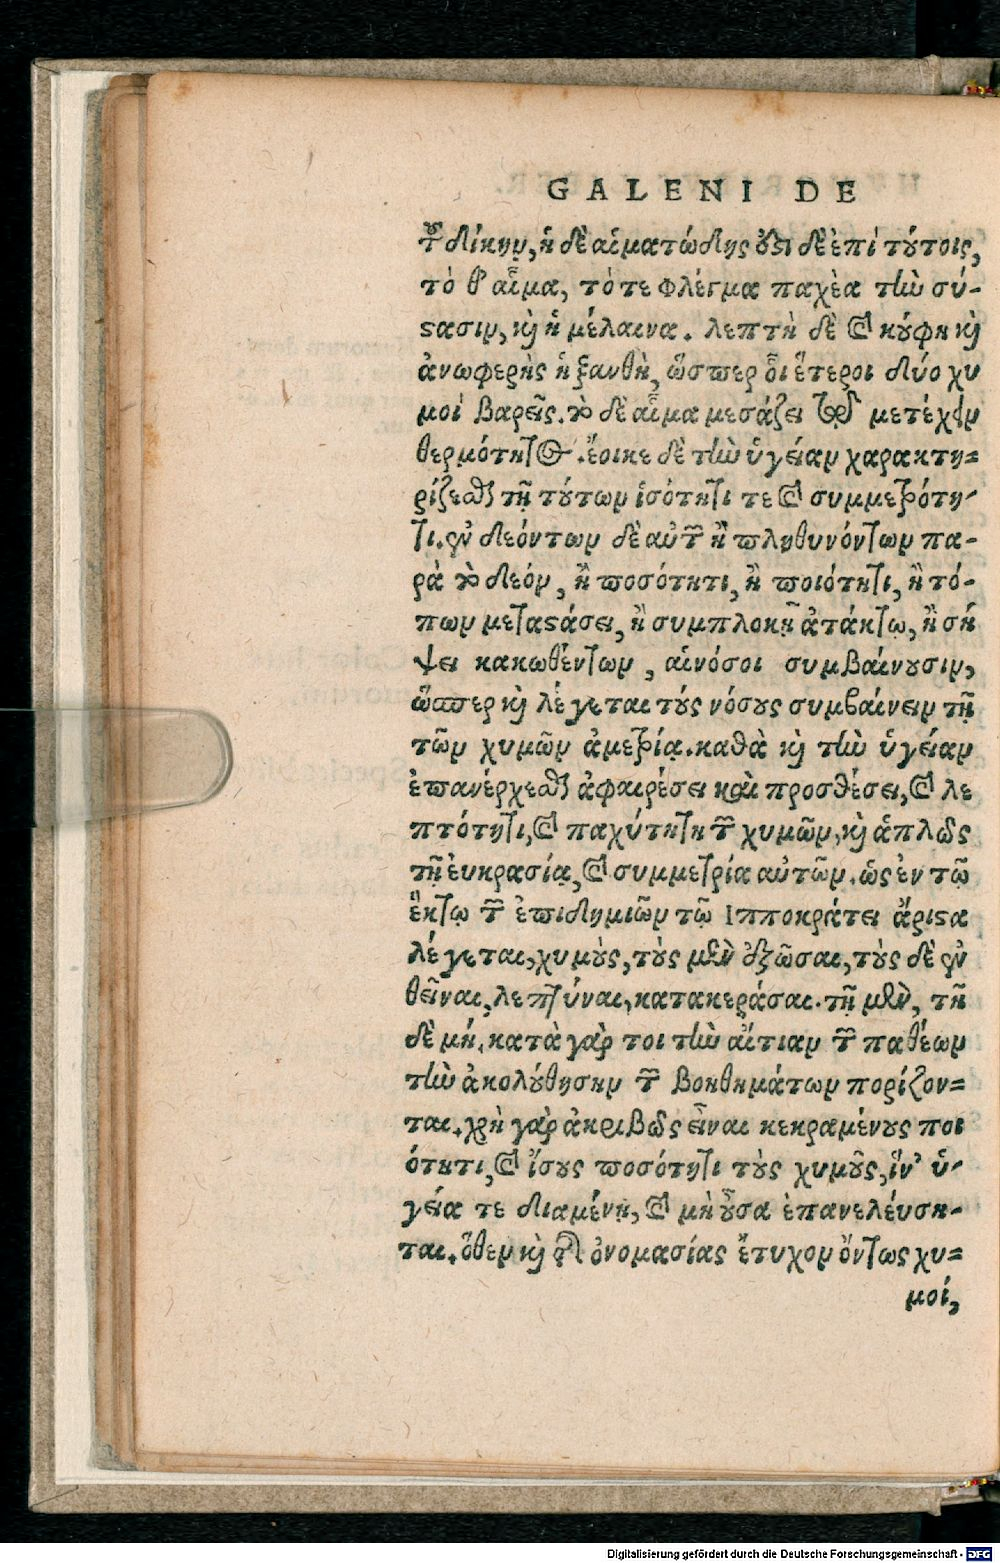 GALENI DE
τ͂ δίκην, ἡ δὲ αἱματώδης ὅτι δὲ ἐπὶ τούτοις,
τό θ' αἷμα, τό τε φλέγμα παχέα τὴν σύ-
στασιν, καὶ ἡ μέλαινα. λεπτὴ δὲ καὶ κούφη καὶ
ἀνωφερὴς ἡ ξανθὴ, ὥσπερ οἱ ἕτεροι δύο χυ
μοὶ βαρεῖς. τὸ δὲ αἷμα μεσάζει μετέχον
θερμότητος. ἔοικε δὲ τὴν ὑγείαν χαρακτη-
ρίζεσθαι τῇ τούτων ἰσότητι τε καὶ συμμετρότη-
τι. ἐν δεόντων δὲ αὐτῶν ἢ πληθυνόντων πα-
ρὰ τὸ δεόν, ἢ ποσότητι, ἢ ποιότητι, ἢ τό-
πων μεταστάσει, ἢ συμπλοκῇ ἀτάκτῳ, ἢ σή
ψει κακωθέντων, αἱ νόσοι συμβαίνουσιν,
ὥσπερ καὶ λέγεται τοὺς νόσους συμβαίνειν τῇ
τῶν χυμῶν ἀμετρίᾳ. καθὰ καὶ τὴν ὑγείαν
ἐπανέρχεσθαι ἀφαιρέσει καὶ προσθέσει, καὶ λε
πτότητι, καὶ παχύτητι τῶν χυμῶν, καὶ ἁπλῶς
τῇ ἐυκρασίᾳ, καὶ συμμετρίᾳ αὐτῶν. ὡς ἐν τῷ
ἕκτῳ τῶν ἐπιδημιῶν τῷ Ιπποκράτει ἄριστα
λέγεται, χυμοὺς, τοὺς μὲν ἐξῶσαι, τοὺς δὲ ἐν
θεῖναι, λεπτύναι, κατακεράσαι. τῇ μὲν, τῇ
δὲ μή. κατὰ γάρ τοι τὴν αἴτιαν τῶν παθέων
τὴν ἀκολούθησην τῶν βοηθημάτων πορίζον-
ται. χρὴ γὰρ ἀκριβῶς εἶναι κεκραμένους ποι
ότητι, καὶ ἴσους ποσότητι τοὺς χυμοῦς, ἵν' ὑ-
γεία τε διαμένῃ, καὶ μὴ οὖσα ἐπανελεύση-
ται. ὅθεν καὶ τῆς ὀνομασίας ἔτυχον ὄντως χυ-
μοί,
Digitalisierung gefördert durch die Deutsche Forschungsgemeinschaft - DFG